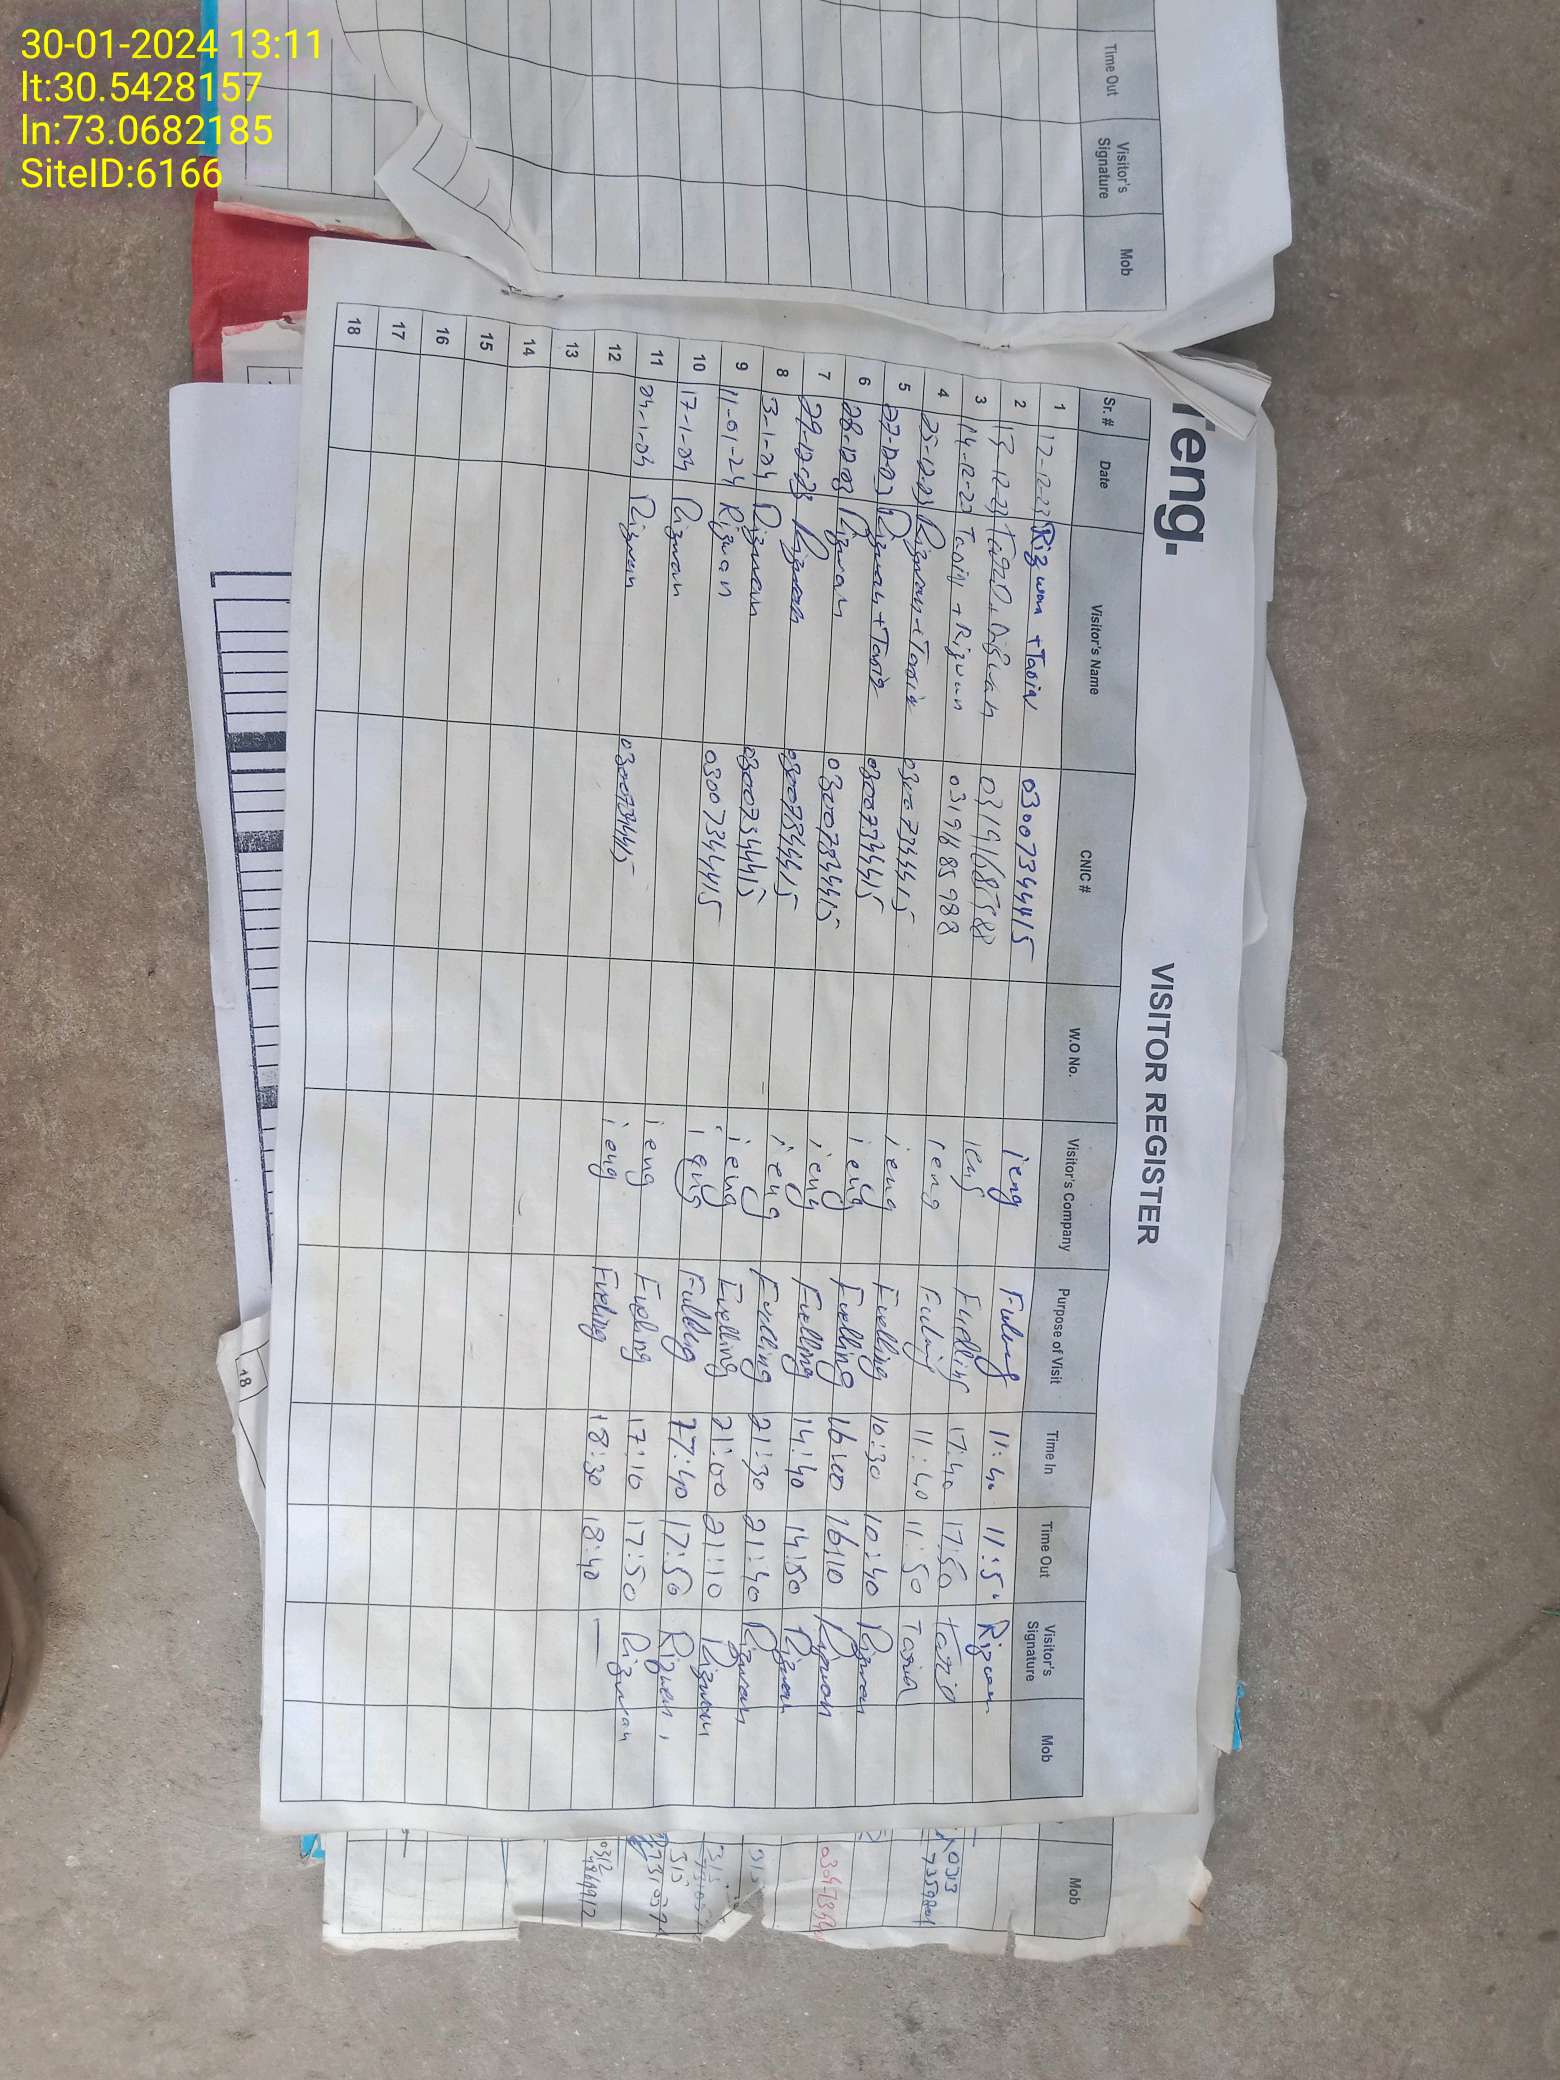 30-01-2024 13:11
lt:30.5428157
ln:73.0682185
SiteID:6166
Time Out Visitor's Signature Mob
eng.
VISITOR REGISTER
Sr. # Date Visitor's Name CNIC # W.O No. Visitor's Company Purpose of Visit Time In Time Out Visitor's Signature Mob
1 12-12-23 Rizwan + Tariq 03007344415 ieng 11:40 11:50 Rizwan
2 03191685988 ieng Fuelling 17:40 17:50
3 14-12-20 + Rizwan 0319685988 ieng 11:40 11:50
4 25-12-23 Rizwan + Tariq 03007344415 ieng Fuelling 10:30 10:40 Rizwan
5 Rizwan + Tariq 03007344415 ieng Fuelling 16:00 16:10 Rizwan
6 Rizwan 03007344415 ieng Fuelling 14:40 14:50 Rizwan
7 29-12-23 Rizwan 03007344415 ieng Fuelling 21:30 21:40 Rizwan
8 3-1-24 Rizwan 03007344415 ieng Fuelling 21:00 21:10 Rizwan
9 11-01-24 Rizwan 03007344415 17:40 17:50 Rizwan
10 17-1-24 Rizwan ieng Fueling 17:10 17:50 Rizwan
11 24-1-24 Rizwan 03007344415 ieng Fueling 18:30 18:40 —
12
13
14
15
16
17
18
Mob
0313
7359801
0312
18